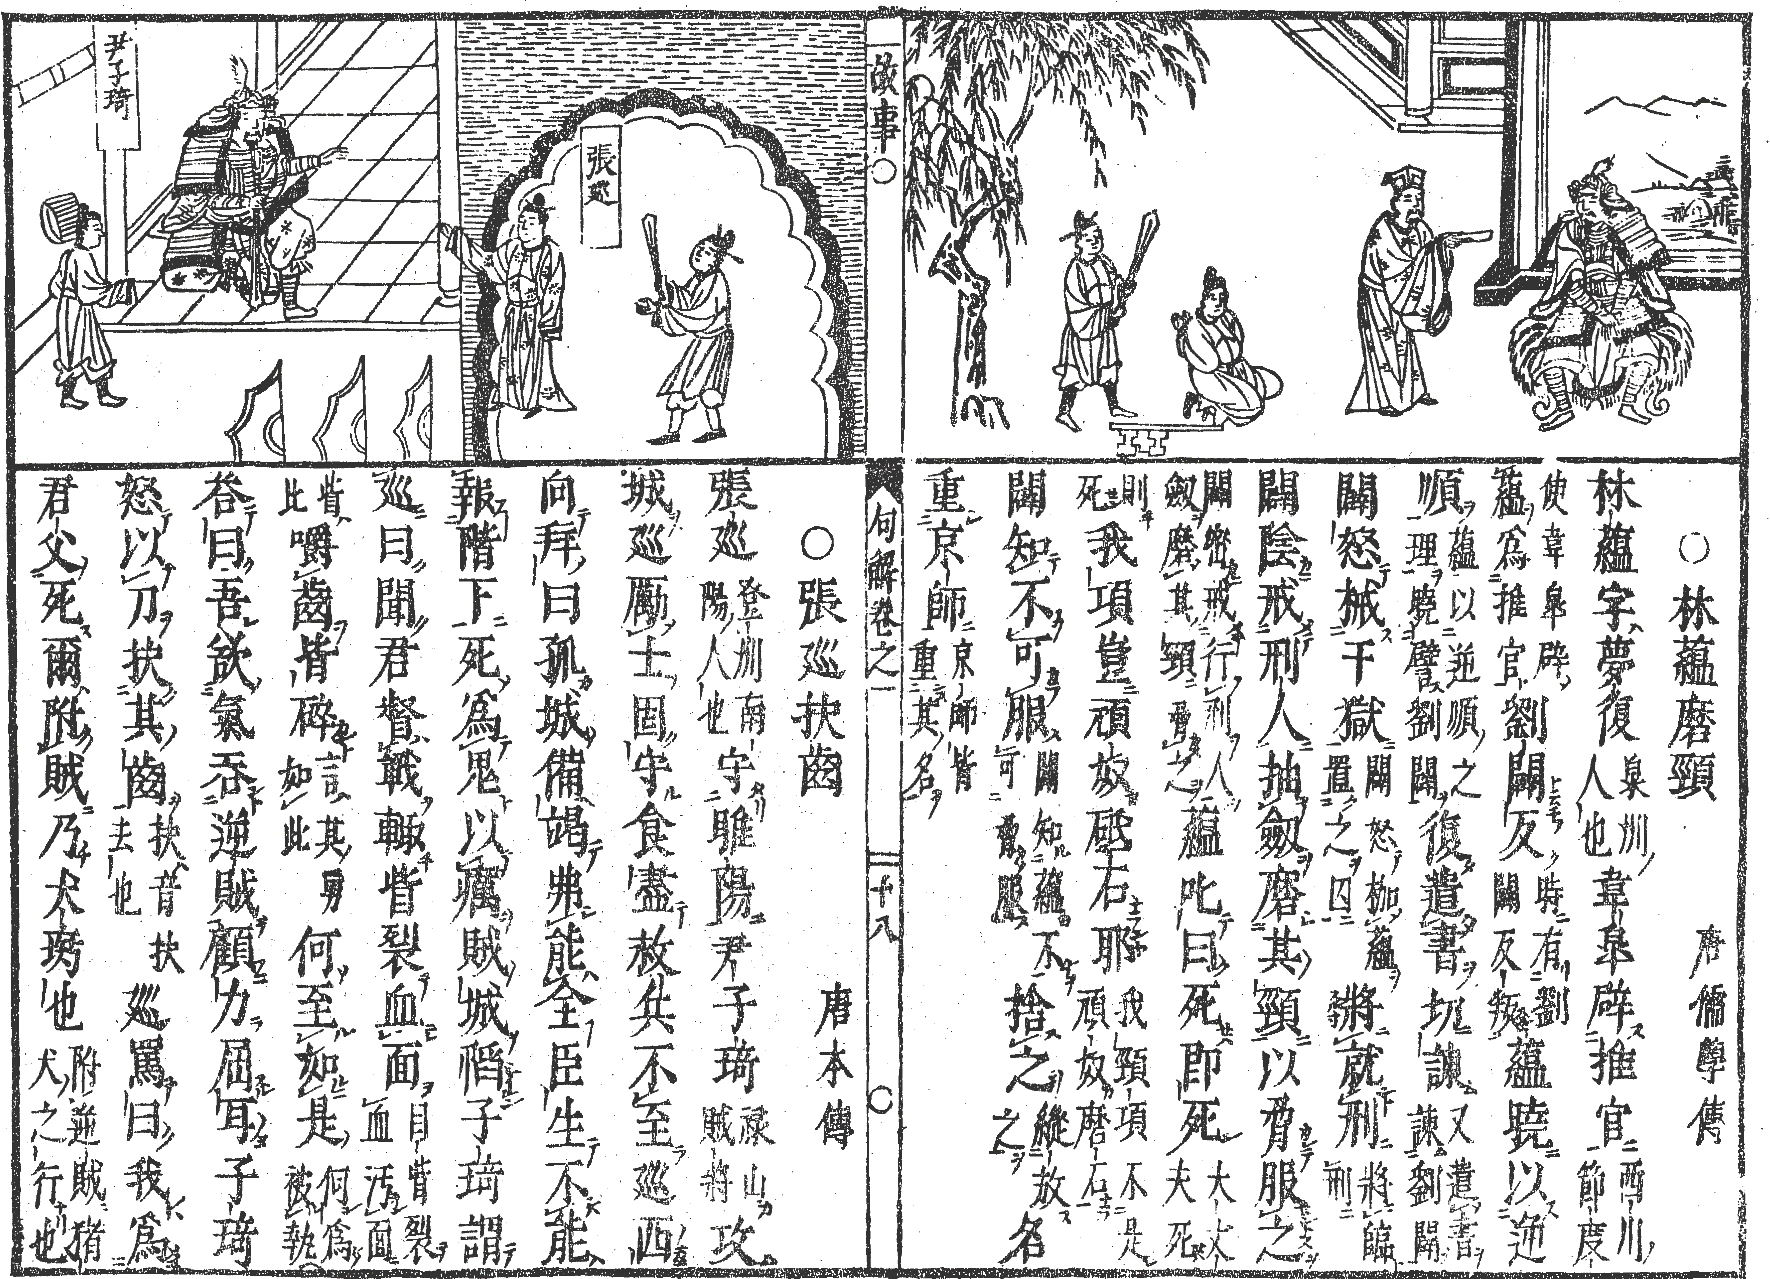 故事○
句解卷之一
十八
○林蘊磨頸 唐儒學傳
林蘊字夢復泉州人也韋皐辟推官西川節度
使韋皐辟蘊為推官劉闢反時有劉闢反叛蘊曉以逆
順蘊以逆順之理曉譬劉闢復遣書切諫又遣書諫劉闢
闢怒械于獄闢怒枷蘊置之囚將就刑將臨刑
闢陰戒刑人抽劔磨其頸以脅服之
闢密戒行刑人劔磨其頸脅之蘊叱曰死即死大丈夫死
則死我項豈頑奴砥石耶我頸項不是頑奴磨石
闢知不可服闢知蘊不可脅服捨之縱放之名
重京師京師皆重其名
○張巡抉齒 唐本傳
張巡登州南陽人也守睢陽尹子琦祿山賊將攻
城巡勵士固守食盡救兵不至巡西
向拜曰孤城備竭弗能全臣生不能
報階下死為鬼以癘賊城陷子琦謂
巡曰聞君督戰輙眥裂血面目眥裂血汚面
眥此嚼齒皆碎言其勇如此何至如是何為被執
答曰吾欲氣吞逆賊顧力屈耳子琦
怒以刀抉其齒抉音抉去也巡罵曰我為
君父死爾附賊乃犬也附逆賊猪犬之行也
張巡
尹子琦